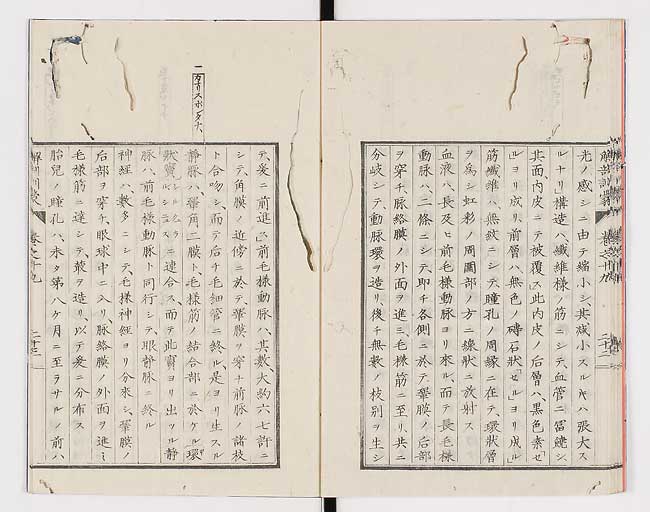 光ノ感シニ由テ縮小シ、其減小スルヤハ張大ス
ルナリ」構造ハ、纖維様ノ筋ニシテ、血管ニ冨饒シ、
其面内皮ニテ被覆ス此内皮ノ后層ハ、黒色素「セ
ル」ヨリ成リ、前層ハ、無色ノ磚石狀「セルヨリ成ル」
筋纖維ハ、無紋ニシテ、瞳孔ノ周縁ニ在テ、環狀層
ヲ為シ、虹彩ノ周圍部ノ方ニ線狀ニ放射ス
血液ハ、長及ヒ前毛様動脈ヨリ來ル、而テ長毛様
動脈ハ、二條ニシテ、即チ各側ニ於テ鞏膜ノ后部
ヲ穿チ、脈絡膜ノ外面ヲ進ミ毛様筋ニ至リ、共ニ
分岐シテ、動脈環ヲ造リ、後チ無數ノ枝別ヲ生シ
解剖訓蒙
卷之十九
二十二
テ、爰ニ前進ス」前毛様動脈ハ、其數、大約六七許ニ
シテ、角膜ノ近傍ニ於テ、鞏膜ヲ穿ナ前脈ノ諸枝
ト合吻ス、而テ后チ毛細管ニ終ル、是ヨリ生スル
静脈ハ、鞏角二膜ト、毛様筋ノ結合部ニ於ケル環
狀竇ニ連合ス、而テ此竇ヨリ出ツル静
脈ハ、前毛様動脈ト同行シテ、眼静脈ニ終ル
神經ハ、數多ニシテ、毛様神經ヨリ分來シ、鞏膜ノ
后部ヲ穿チ、眼球中ニ入リ、脈絡膜ノ外面ヲ進ミ
毛様筋ニ達シテ、叢ヲ造リ、以テ爰ニ分布ス
胎兒ノ瞳孔ハ、未タ第八ケ月ニ至ラサルノ前ハ
解剖訓蒙
卷之十九
二十三